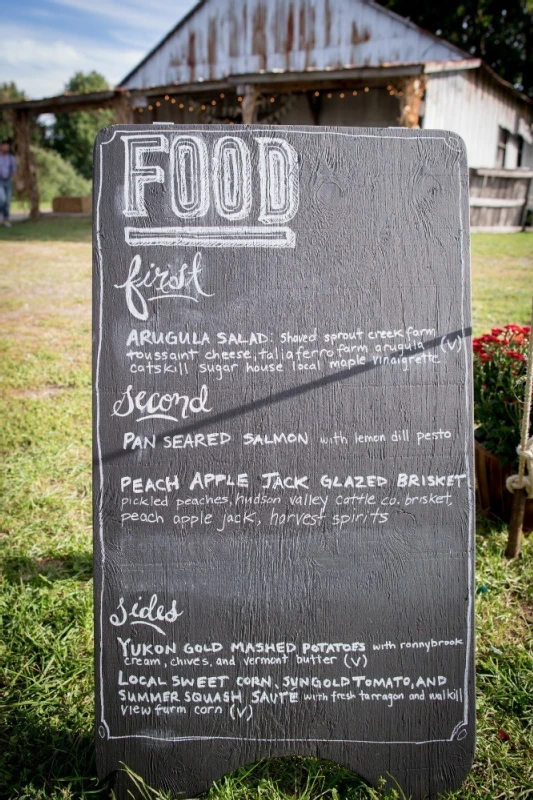 FOOD
first
ARUGULA SALAD: Shaved sprout creek farm
toussaint cheese, taliaferro farm arugula (V)
catskill sugar house local maple vinaigrette
second
PAN SEARED SALMON with lemon dill pesto
PEACH APPLE JACK GLAZED BRISKET
pickled peaches, hudson valley cattle co. brisket,
peach apple jack, harvest spirits
sides
YUKON GOLD MASHED POTATOES with ronnybrook
cream, chives, and vermont butter (V)
LOCAL SWEET CORN, SUNGOLD TOMATO, AND
SUMMER SQUASH SAUTE with fresh tarragon and wallkill
view farm corn (V)